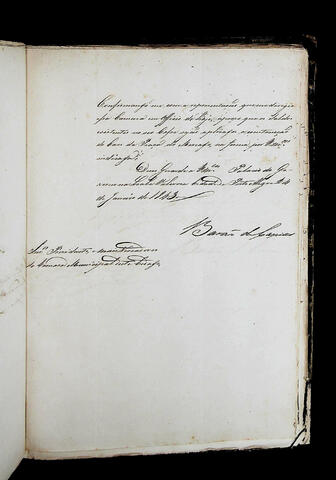 Conformando me com a representação que me dirigio
essa Camara em Officio de hoje, approvo que o Saldo
existente no seo Cofre seja applicado a continuação
do Caes da Praça do Mercado, na forma, por V. Mces
indicada.
Deos Guarde a V. Mces Palacio do Go-
verno na Leal e Valorosa Cidade de Porto Alegre 24
de Janeiro de 1843.
Barão de Caxias
Snres Presidente, e mais Vereadores
da Camara Municipal desta Cidade